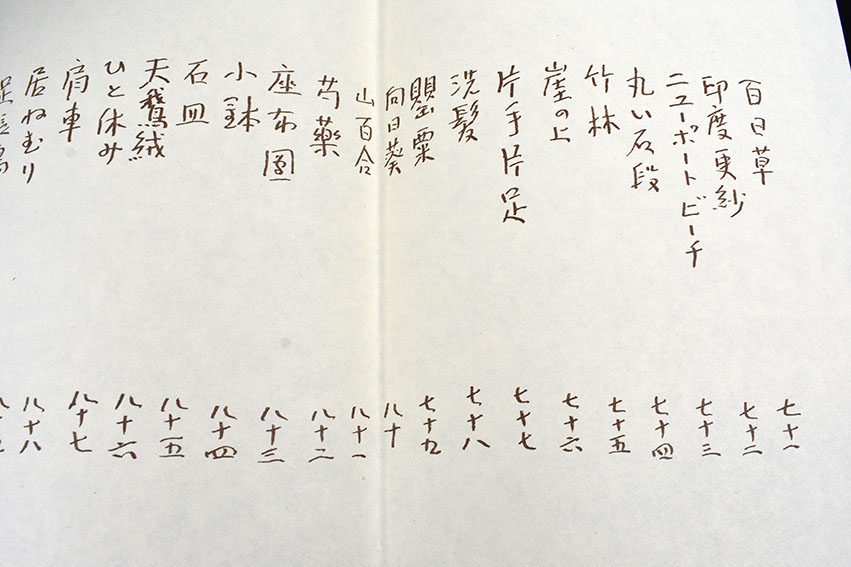 百日草
印度更紗
ニューポートビーチ
丸い石段
竹林
崖の上
片手片足
洗髪
罌粟
向日葵
山百合
芍薬
座布團
小鉢
石皿
天鵞絨
ひと休み
肩車
居ねむり
七十一
七十二
七十三
七十四
七十五
七十六
七十七
七十八
七十九
八十
八十一
八十二
八十三
八十四
八十五
八十六
八十七
八十八